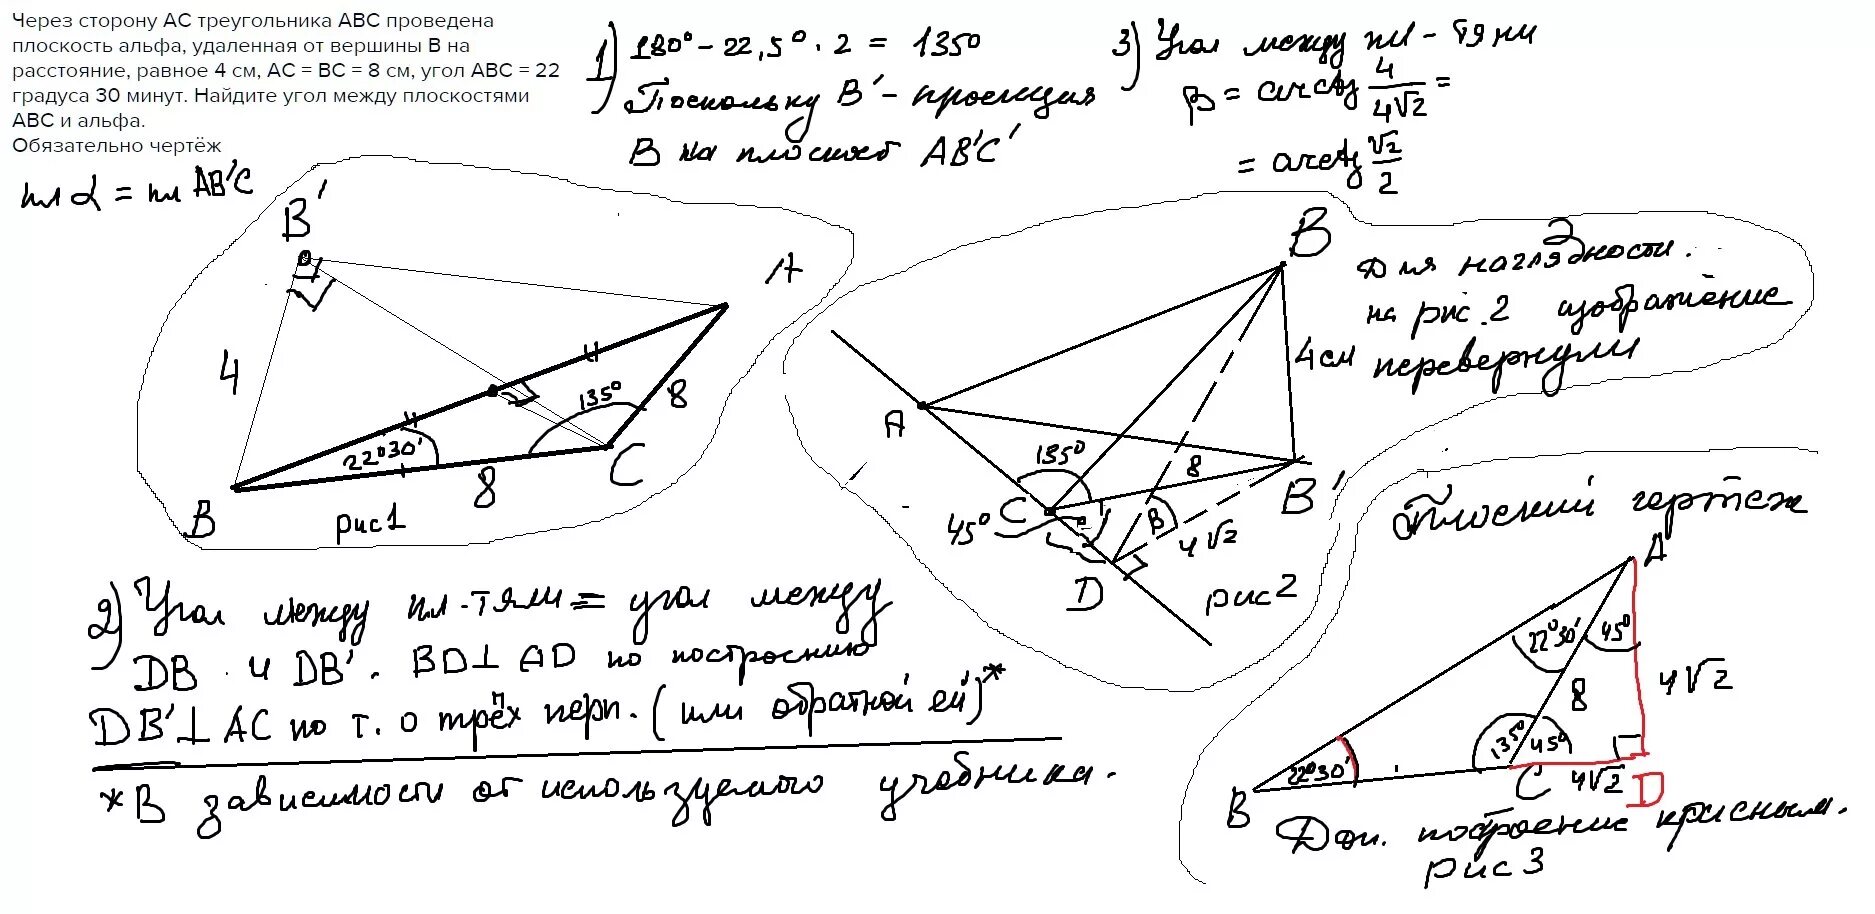 Через сторону АС треугольника АВС проведена
плоскость альфа, удаленная от вершины В на
расстояние, равное 4 см, АС = ВС = 8 см, угол АВС = 22
градуса 30 минут. Найдите угол между плоскостями
АВС и альфа.
Обязательно чертёж
пл α = пл АВ'С
1) 180° - 22,5° · 2 = 135°
Поскольку В' - проекция
В на плоскост АВ'С'
3) Угол между пл-тями
β = arctg 4/4√2 =
= arctg √2/2
В'
А
4
135°
8
22°30'
8
С
В
рис1
В
Для наглядности.
на рис. 2 изображение
перевернули
4см
А
135°
8
С
45°
В'
β
4√2
D
рис2
2) Угол между пл-тями = угол между
DB и DB'. BD⊥AD по построению
DB'⊥AC по т. о трёх перп. (или обратной ей)*
*В зависимости от используемого учебника.
Плоский чертеж
А
22°30'
45°
8
4√2
135°
45°
22°30'
В
С
4√2
D
Доп. построение красным.
рис3